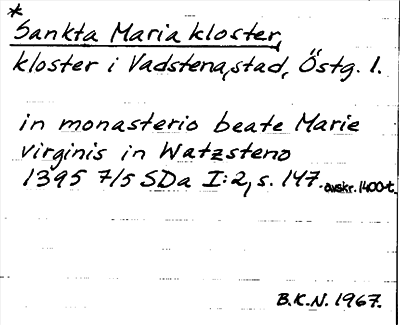 *
Sankta Maria kloster,
kloster i Vadstena, stad, Östg. l.
in monasterio beate Marie
virginis in Watzsteno
1395 7/5 SDa I:2, s. 147. avskr. 1400-t.
B.K.N. 1967.